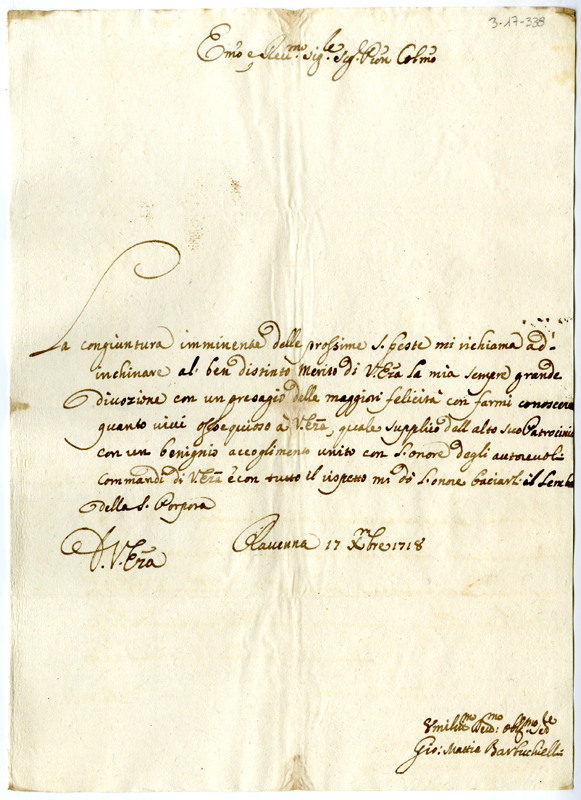 3-17-338
Emo e Reumo. Sigle. Sig. Pron Colmo
La congiuntura imminente delle prossime S. feste mi richiama ad-
inchinare al ben distinto Merito di V. Eza la mia sempre grande
divozione con un presagio delle maggiori felicità con farmi conoscere
quanto vivi ossequioso à V. Eza, quale supplico dell'alto suo Patrocinio
con un benignio accoglimento unito con l'onore degli autoreuoli
Commandi di V. Eza è con tutto il rispetto mi dò l'onore baciarli il Lembo
della S. Porpora
D. V. Eza
Ravenna 17 Xmbre 1718
Vmilimo Deuo: mo oblmo Sede
Gio: Mattia Barbuchielli